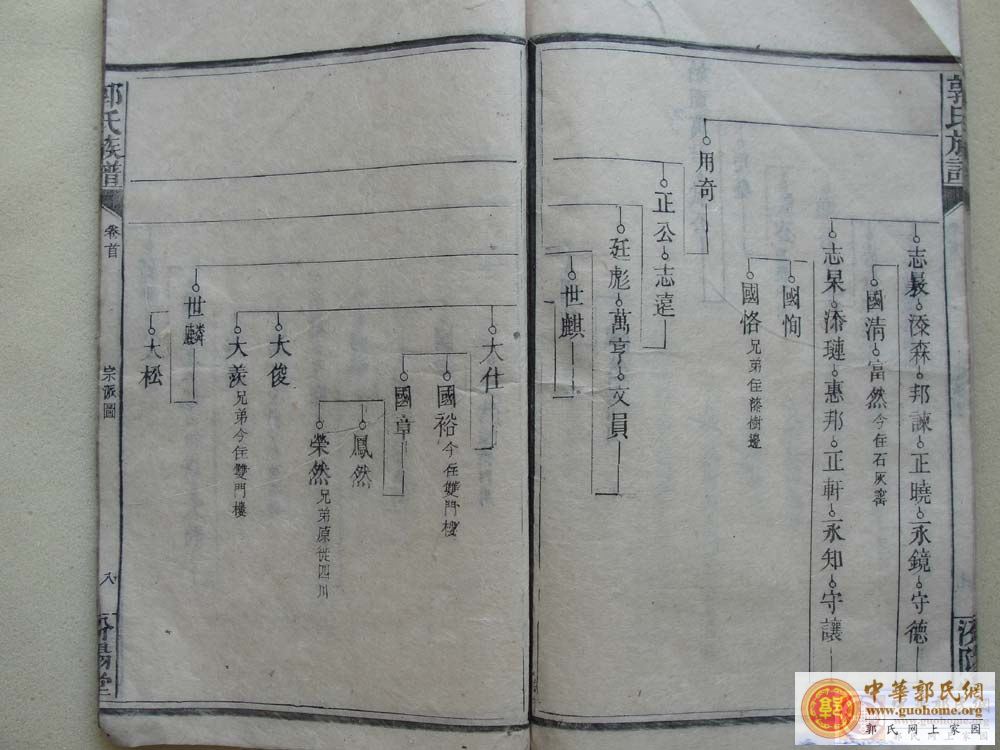 郭氏族譜
志㝡 添森 邦諫 正曉 永鏡 守德
國清 富然 今住石灰窰
志杲 添璉 惠邦 正軒 永知 守讓
國恂
國恪 兄弟住藤樹邊
用奇
正公 志遠
廷彪 萬亨 文員
世麒
大仕
國裕 今住雙門樓
國章
鳳然
榮然 兄弟原從四川
大俊
大羨 兄弟今住雙門樓
世麟
大松
郭氏族譜
卷首
宗派圖
八
汾陽堂
中華郭氏網
www.guohome.org
郭氏网上家园